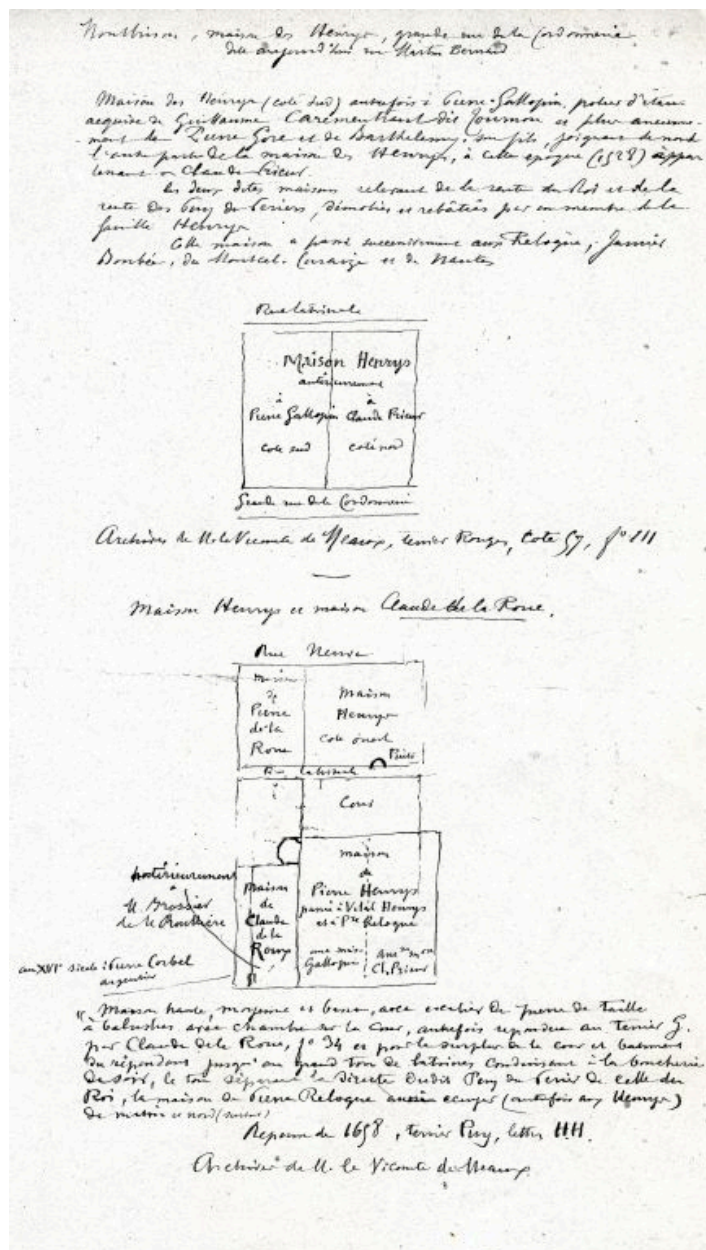 Montbrison, maison des Henrys, grande rue de la Cordonnerie
dite aujourd'hui rue Martin Bernard
Maison des Henrys (coté sud) autrefois à Pierre Gallopin, potier d'étain
acquise de Guillaume Carementrant dit Journon et plus ancienne-
ment de Pierre Gore et de Barthelemy, son fils, joignant de nord
l'autre partie de la maison des Henrys, à cette époque (1528) appar
tenant à Claude Prieur.
Les deux dites maisons relevant de la rente du Roi et de la
rente des Puy du Périers, démolies et rebâties par un membre de la
famille Henrys
Cette maison a passé successivement aux Relogue, Janvier
Bombée, du Montcel. Curaize et de Nantes
Rue latrinale
Maison Henrys
antérieurement
à à
Pierre Gallopin Claude Prieur
coté sud coté nord
Grande rue de la Cordonnerie
Archives de M. le Vicomte de Meaux, terrier Rouges, Cote 57, f° 111
Maison Henrys et maison Claude de la Roue.
Rue Neuve
Maison
de
Pierre
de la
Roue
Maison
Henrys
coté ouest
Puits
Rue latrinale
Cour
postérieurement
à
M. Brossier
de la Roullière
au XVIe siècle : Pierre Corbel
argentier
Maison
de
Claude
de la
Roue
maison
de
Pierre Henrys
passé à Vital Henrys
et à Pre Relogue
anc. maison
Gallopin
anc. maison
Cl. Prieur
"Maison haute, moyenne et basse, avec escalier de pierre de taille
à balustres avec chambre sur la cour, autrefois repondue au terrier G.
par Claude de la Roue, f° 34 et pour le surplus de la cour et batiment
du répondant jusqu'au grand tou de latrines conduisant à la boucherie
de soir, le tou séparant la directe dudit Puy du Périer de celle du
Roi, la maison de Pierre Relogue ecuyer (autrefois aux Henrys)
de matin et nord
Reponse de 1658, terrier Puy, lettres HH.
Archives de M. le Vicomte de Meaux.